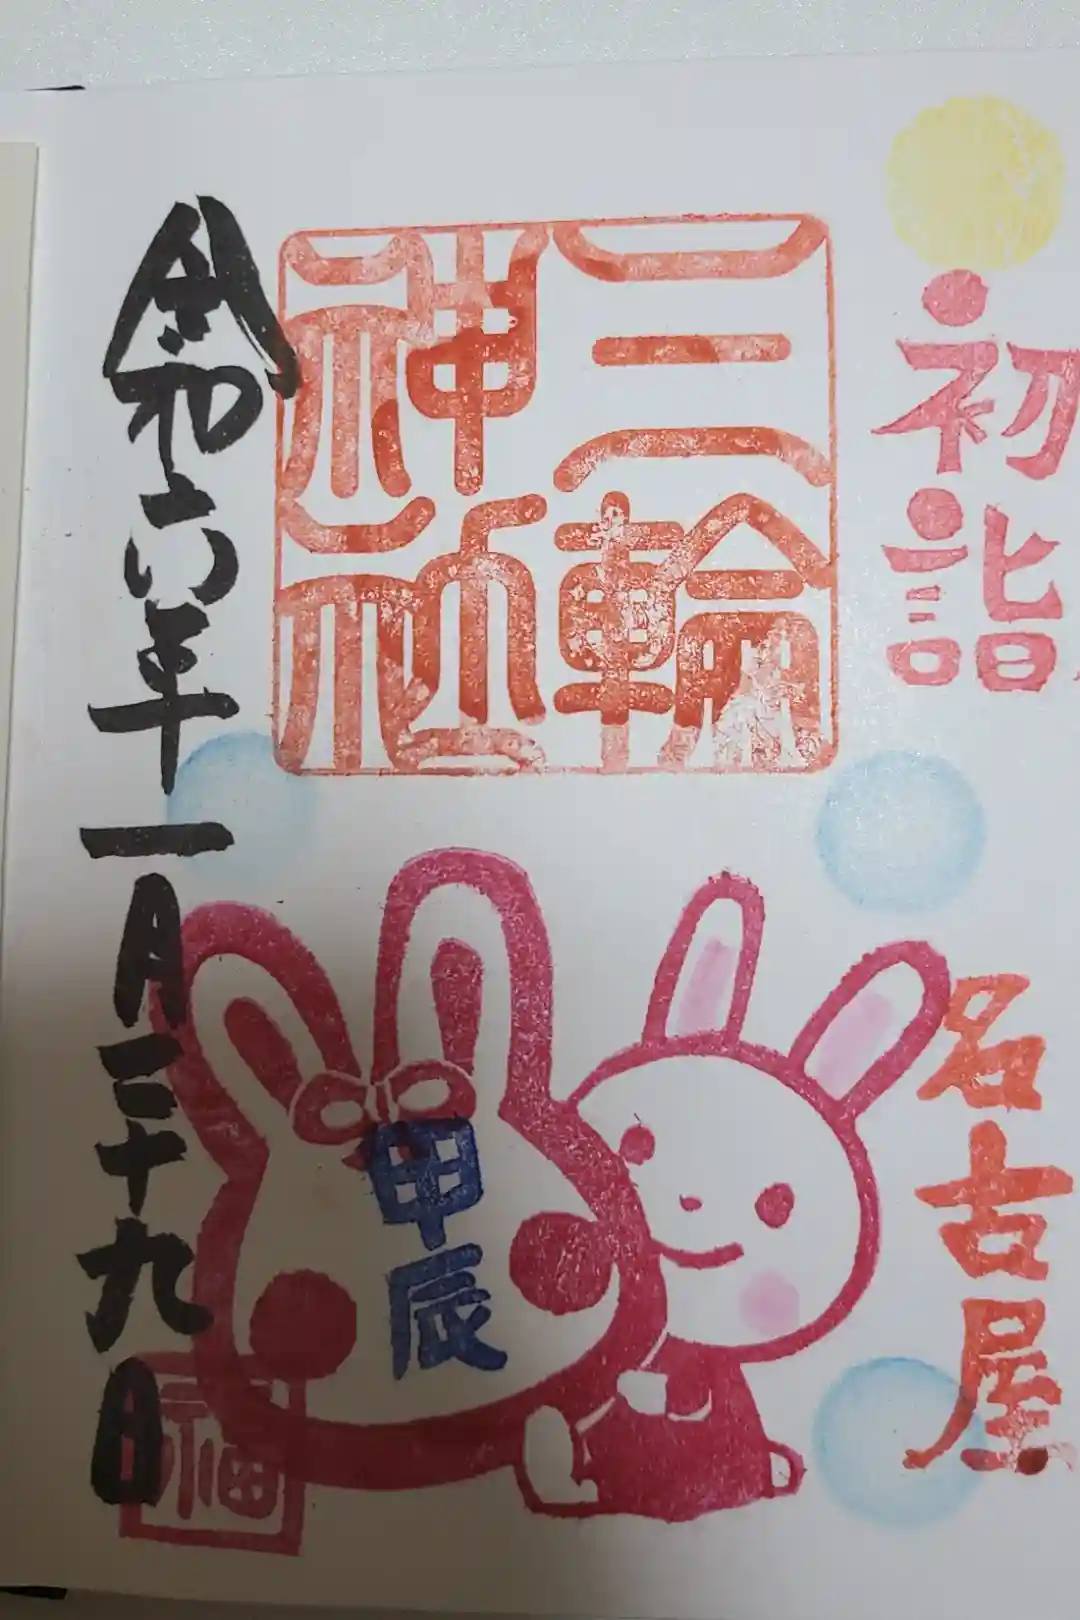 初詣
名古屋
三輪
神社
甲辰
令和六年一月二十九日
福